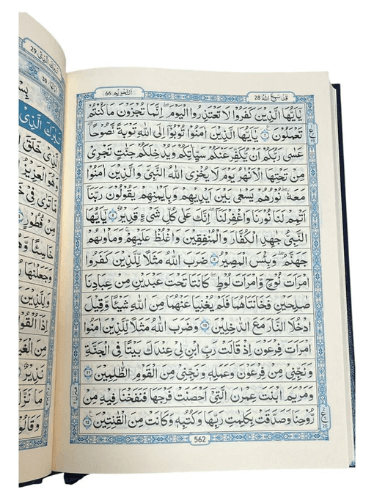 قد سمع الله ٢٨
التحريم ٦٦
يٰۤاَيُّهَا الَّذِيْنَ كَفَرُوْا لَا تَعْتَذِرُوا الْيَوْمَ ؕ اِنَّمَا تُجْزَوْنَ مَا كُنْتُمْ
تَعْمَلُوْنَ ۝ يٰۤاَيُّهَا الَّذِيْنَ اٰمَنُوْا تُوْبُوْۤا اِلَى اللّٰهِ تَوْبَةً نَّصُوْحًا ؕ
عَسٰى رَبُّكُمْ اَنْ يُّكَفِّرَ عَنْكُمْ سَيِّاٰتِكُمْ وَيُدْخِلَكُمْ جَنّٰتٍ تَجْرِيْ
مِنْ تَحْتِهَا الْاَنْهٰرُ ۙ يَوْمَ لَا يُخْزِى اللّٰهُ النَّبِيَّ وَالَّذِيْنَ اٰمَنُوْا
مَعَهٗ ۚ نُوْرُهُمْ يَسْعٰى بَيْنَ اَيْدِيْهِمْ وَبِاَيْمَانِهِمْ يَقُوْلُوْنَ رَبَّنَاۤ
اَتْمِمْ لَنَا نُوْرَنَا وَاغْفِرْ لَنَا ۚ اِنَّكَ عَلٰى كُلِّ شَيْءٍ قَدِيْرٌ ۝ يٰۤاَيُّهَا
النَّبِيُّ جَاهِدِ الْكُفَّارَ وَالْمُنٰفِقِيْنَ وَاغْلُظْ عَلَيْهِمْ ؕ وَمَاْوٰىهُمْ
جَهَنَّمُ ؕ وَبِئْسَ الْمَصِيْرُ ۝ ضَرَبَ اللّٰهُ مَثَلًا لِّلَّذِيْنَ كَفَرُوا
امْرَاَتَ نُوْحٍ وَّامْرَاَتَ لُوْطٍ ؕ كَانَتَا تَحْتَ عَبْدَيْنِ مِنْ عِبَادِنَا
صَالِحَيْنِ فَخَانَتٰهُمَا فَلَمْ يُغْنِيَا عَنْهُمَا مِنَ اللّٰهِ شَيْـًٔا وَّقِيْلَ
ادْخُلَا النَّارَ مَعَ الدّٰخِلِيْنَ ۝ وَضَرَبَ اللّٰهُ مَثَلًا لِّلَّذِيْنَ اٰمَنُوا
امْرَاَتَ فِرْعَوْنَ ۘ اِذْ قَالَتْ رَبِّ ابْنِ لِيْ عِنْدَكَ بَيْتًا فِى الْجَنَّةِ
وَنَجِّنِيْ مِنْ فِرْعَوْنَ وَعَمَلِهٖ وَنَجِّنِيْ مِنَ الْقَوْمِ الظّٰلِمِيْنَ ۝
وَمَرْيَمَ ابْنَتَ عِمْرٰنَ الَّتِيْۤ اَحْصَنَتْ فَرْجَهَا فَنَفَخْنَا فِيْهِ مِنْ
رُّوْحِنَا وَصَدَّقَتْ بِكَلِمٰتِ رَبِّهَا وَكُتُبِهٖ وَكَانَتْ مِنَ الْقٰنِتِيْنَ ۝
562